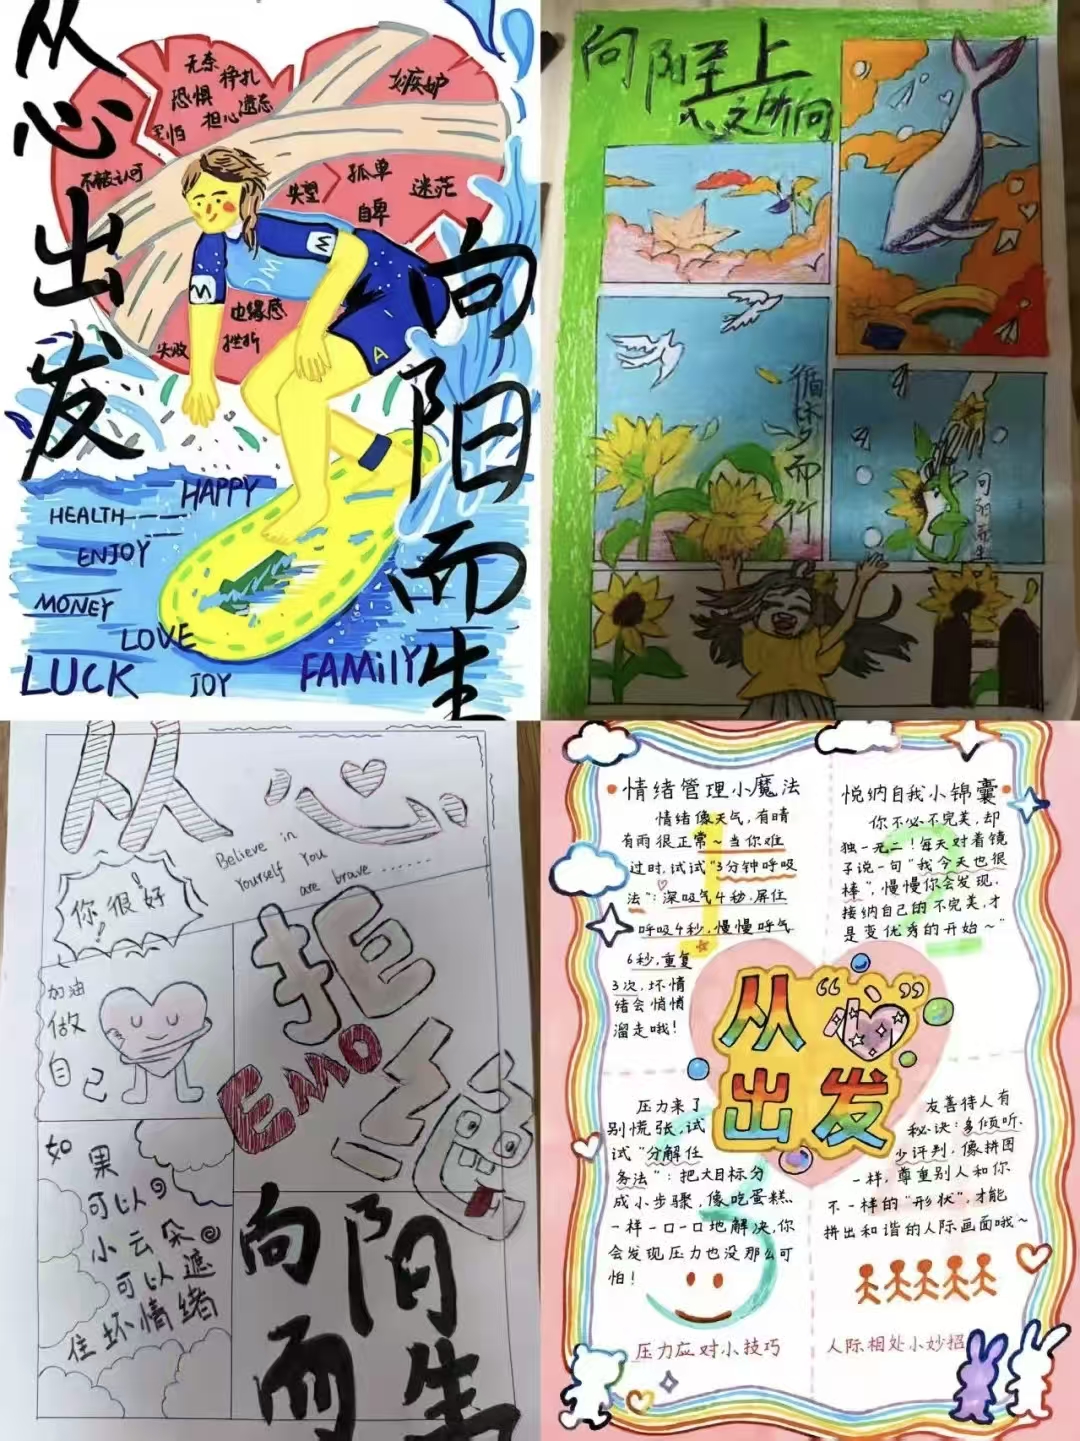 从心出发
向阳而生
无奈
挣扎
恐惧
担心
遗忘
害怕
嫉妒
不被认可
失望
孤单
自卑
迷茫
边缘感
失败
挫折
HAPPY
HEALTH
ENJOY
MONEY
LOVE
LUCK
JOY
FAMiLY
向阳至上
心之所向
循环梦而行
向阳而生
从心
Believe in
Yourself You
are brave ......
你很好!
加油
做
自己
拒绝
EMO
如果
可以
小云朵
可以遮
住坏情绪
向阳而生
情绪管理小魔法
情绪像天气,有晴
有雨很正常~当你难
过时,试试"3分钟呼吸
法":深吸气4秒,屏住
呼吸4秒,慢慢呼气
6秒,重复
3次,坏情
绪会悄悄
溜走哦!
悦纳自我小锦囊
你不必不完美,却
独一无二!每天对着镜
子说一句"我今天也很
棒",慢慢你会发现,
接纳自己的不完美,才
是变优秀的开始~"
从"心"
出发
压力来了
别慌张,试
试"分解任
务法":把大目标分
成小步骤,像吃蛋糕
一样一口一口地解决,你
会发现压力也没那么可
怕!
压力应对小技巧
友善待人有
秘诀:多倾听、
少评判,像拼图
一样,尊重别人和你
不一样的"形状",才能
拼出和谐的人际画面哦~
人际相处小妙招